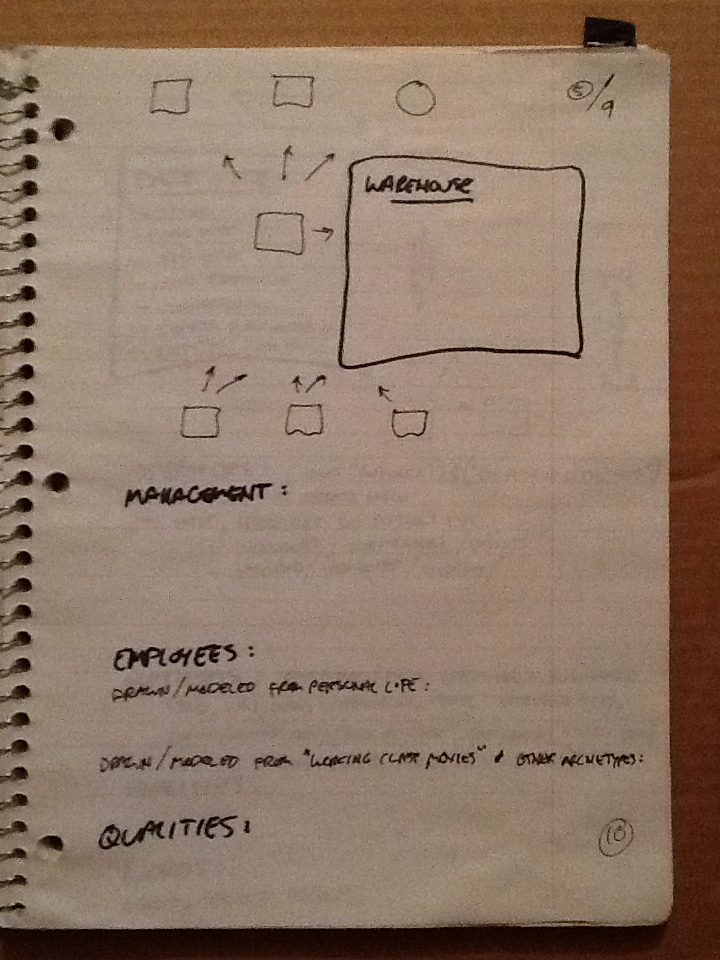 ⑤/9
WAREHOUSE
MANAGEMENT:
EMPLOYEES:
DRAWN/MODELED FROM PERSONAL LIFE:
DRAWN/MODELED FROM "WORKING CLASS MOVIES" & OTHER ARCHETYPES:
QUALITIES:
10